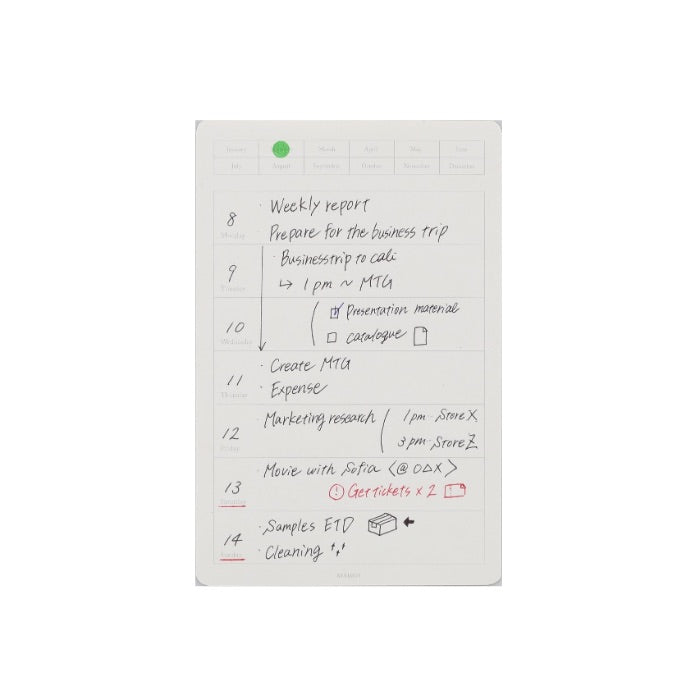 January March April May June
July August September October November December
8 Monday
· Weekly report
· Prepare for the business trip
9 Tuesday
· Businesstrip to cali
↳ 1 pm ~ MTG
10 Wednesday
☑ Presentation material
☐ catalogue
11 Thursday
· Create MTG
· Expense
12 Friday
· Marketing research
1 pm · Store X
3 pm · Store Z
13 Saturday
· Movie with Sofia <@ O△X>
! Get tickets x 2
14 Sunday
· Samples ETD
· Cleaning